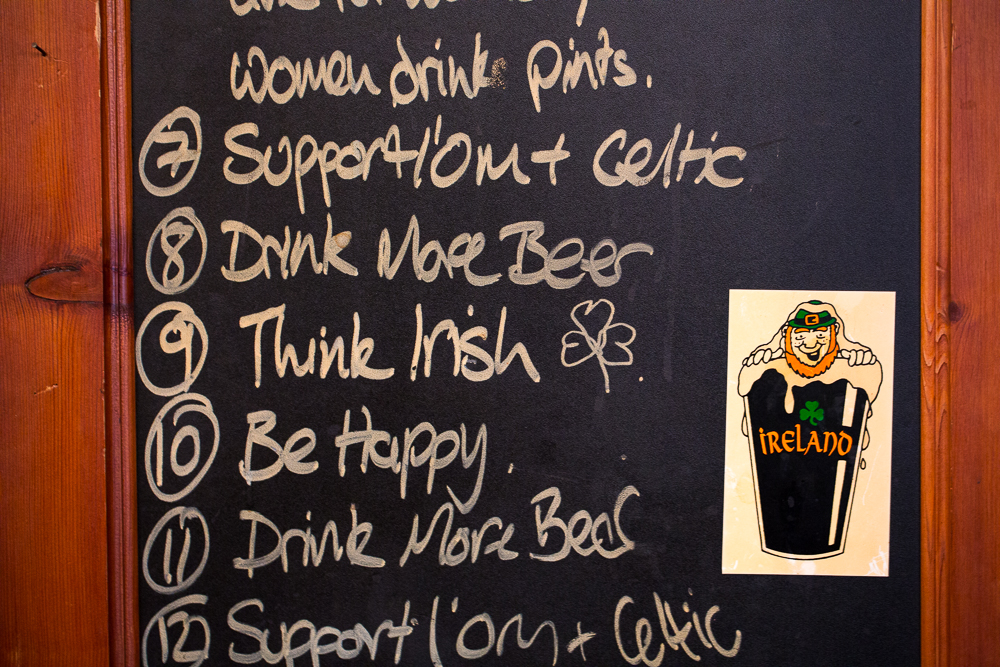 women drink pints.
7 Support l'Om + Celtic
8 Drink More Beer
9 Think Irish
10 Be Happy.
11 Drink More Beer
12 Support l'Om + Celtic
IRELAND